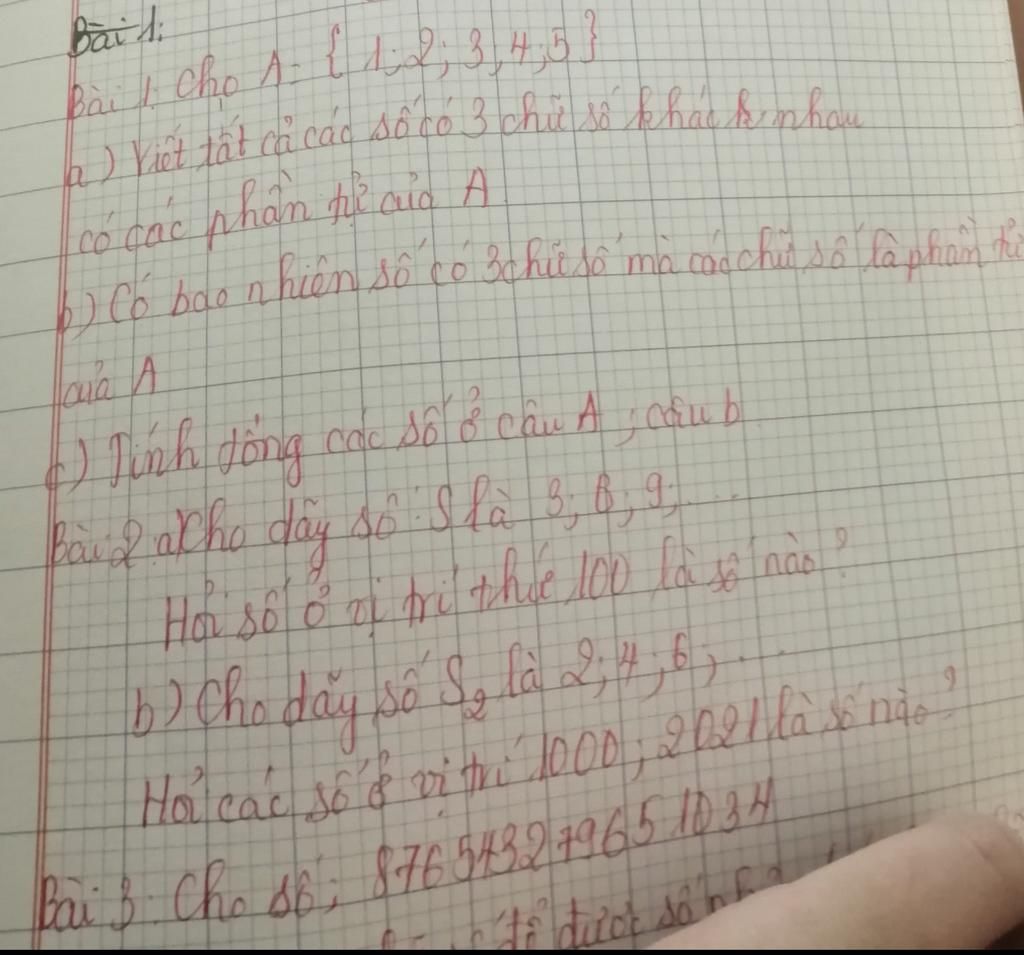 Bài 1:
Bài 1. Cho A = { 1; 2; 3, 4; 5 }
a) Viết tất cả các số có 3 chữ số khác k nhau
có các phần tử của A
b) Có bao nhiên số có 3 chữ số mà các chữ số là phần tử
của A
c) Tính tổng các số ở câu A; câu b
Bài 2 a) Cho dãy số S là 3; 6; 9; ...
Hỏi số ở vị trí thứ 100 là số nào?
b) Cho dãy số S2 là 2; 4; 6; ...
Hỏi các số ở vị trí 1000; 2021 là số nào?
Bài 3: Cho số;
để được số